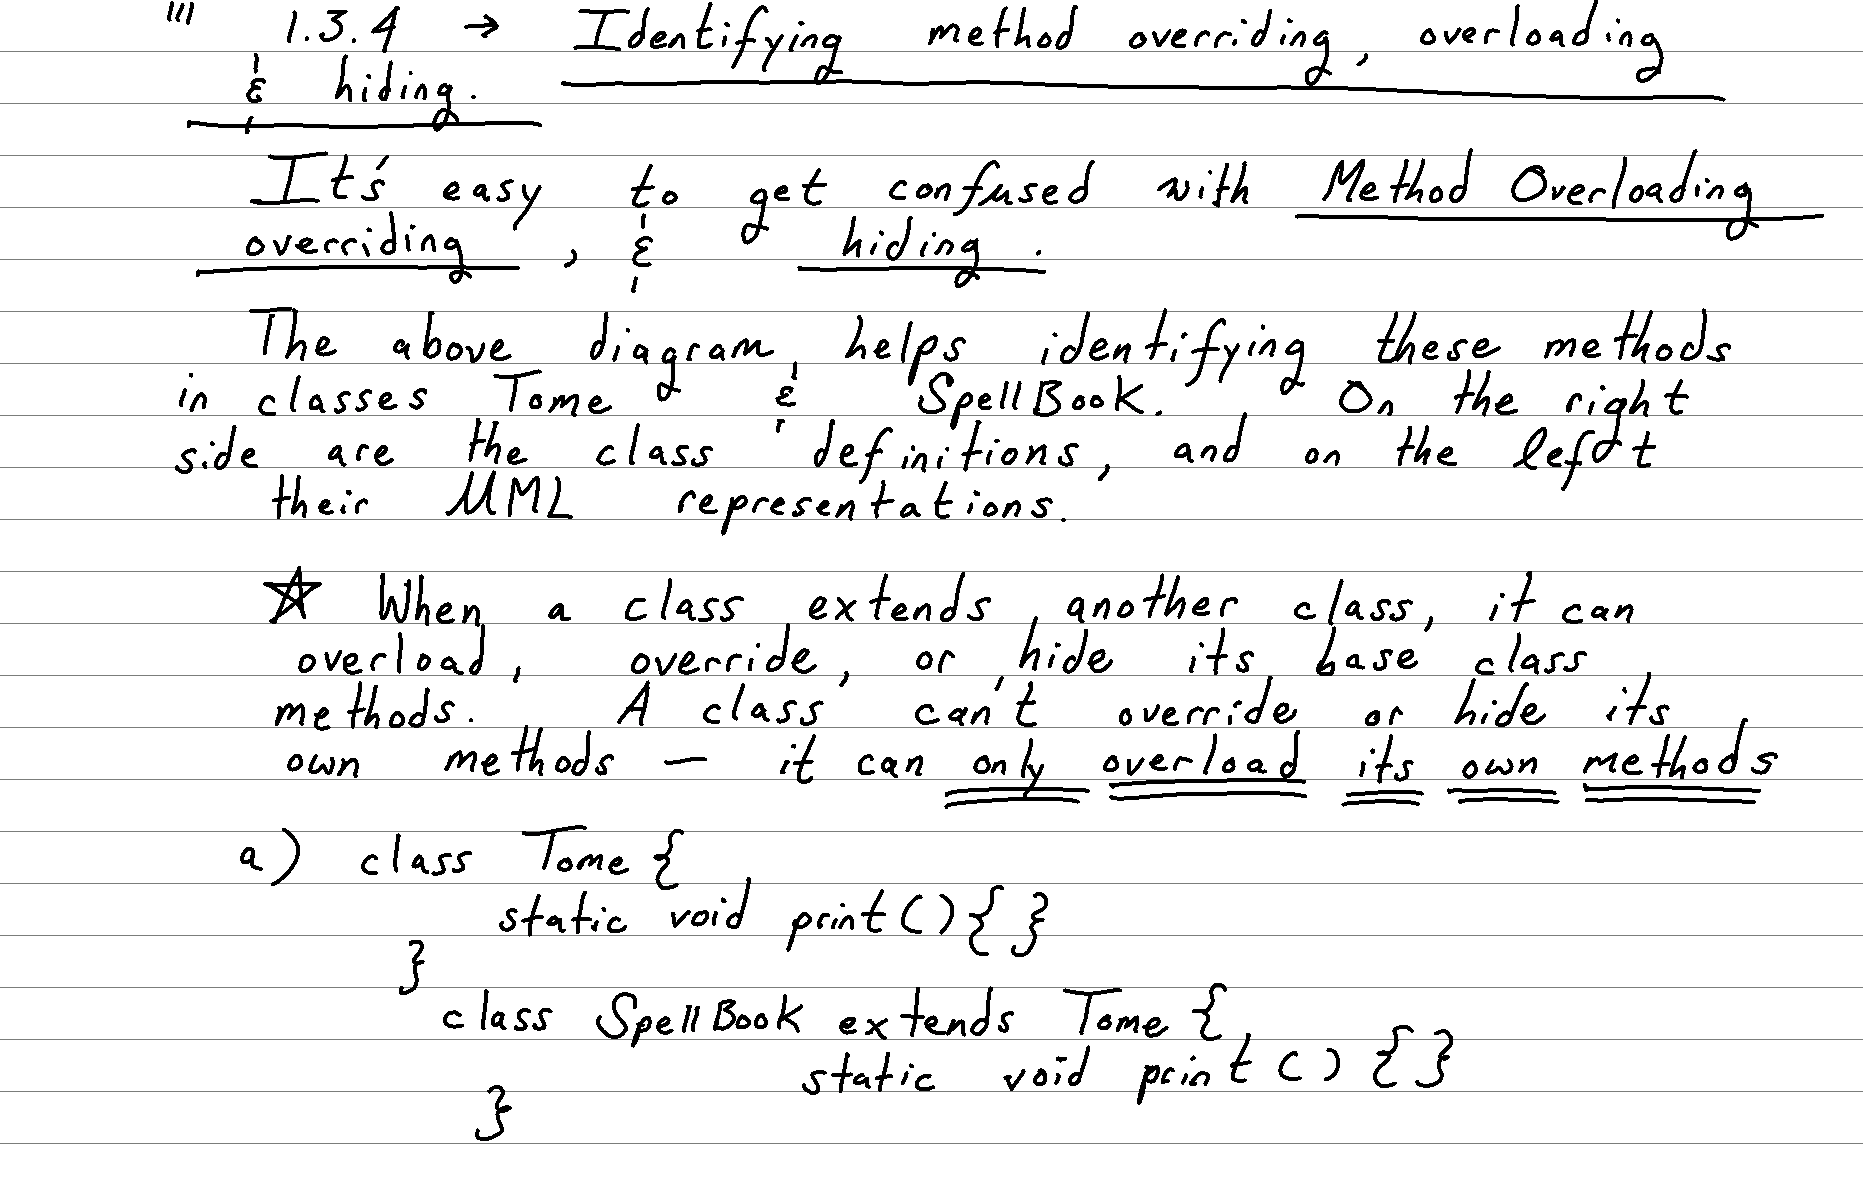 ''' 1.3.4 → Identifying method overriding, overloading
& hiding.
It's easy to get confused with Method Overloading
overriding, & hiding.
The above diagram helps identifying these methods
in classes Tome & SpellBook. On the right
side are the class definitions, and on the left
their UML representations.
☆ When a class extends another class, it can
overload, override, or hide its base class
methods. A class can't override or hide its
own methods — it can only overload its own methods
a) class Tome {
static void print(){ }
}
class SpellBook extends Tome {
static void print() { }
}